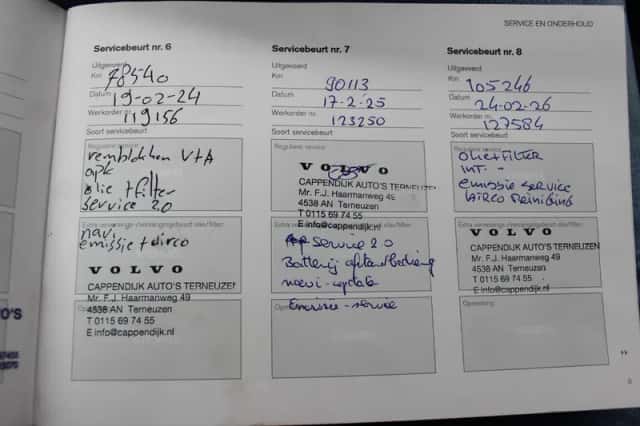 SERVICE EN ONDERHOUD
Servicebeurt nr. 6
Uitgevoerd
Km 78540
Datum 19-02-24
Werkorder nr. 119156
Soort servicebeurt
Reguliere service
remblokken V+A
apk
olie + filter
service 2.0
Extra verversings-/vervangingsbeurt olie/filter:
nav.
emissie + airco
VOLVO
CAPPENDIJK AUTO'S TERNEUZEN
Mr. F.J. Haarmanweg 49
4538 AN Terneuzen
T 0115 69 74 55
E info@cappendijk.nl
Servicebeurt nr. 7
Uitgevoerd
Km 90113
Datum 17-2-25
Werkorder nr. 123250
Soort servicebeurt
Reguliere service
VOLVO
CAPPENDIJK AUTO'S TERNEUZEN
Mr. F.J. Haarmanweg 49
4538 AN Terneuzen
T 0115 69 74 55
E info@cappendijk.nl
Extra verversings-/vervangingsbeurt olie/filter:
service 2.0
Batterij afstandbediening
navi-update
Emissie-service
Servicebeurt nr. 8
Uitgevoerd
Km 105246
Datum 24-02-26
Werkorder nr. 127584
Soort servicebeurt
Reguliere service
OLIE+FILTER
INT. -
emissie service
AIRCO REINIGING
Extra verversings-/vervangingsbeurt olie/filter:
VOLVO
CAPPENDIJK AUTO'S TERNEUZEN
Mr. F.J. Haarmanweg 49
4538 AN Terneuzen
T 0115 69 74 55
E info@cappendijk.nl
Opmerking: